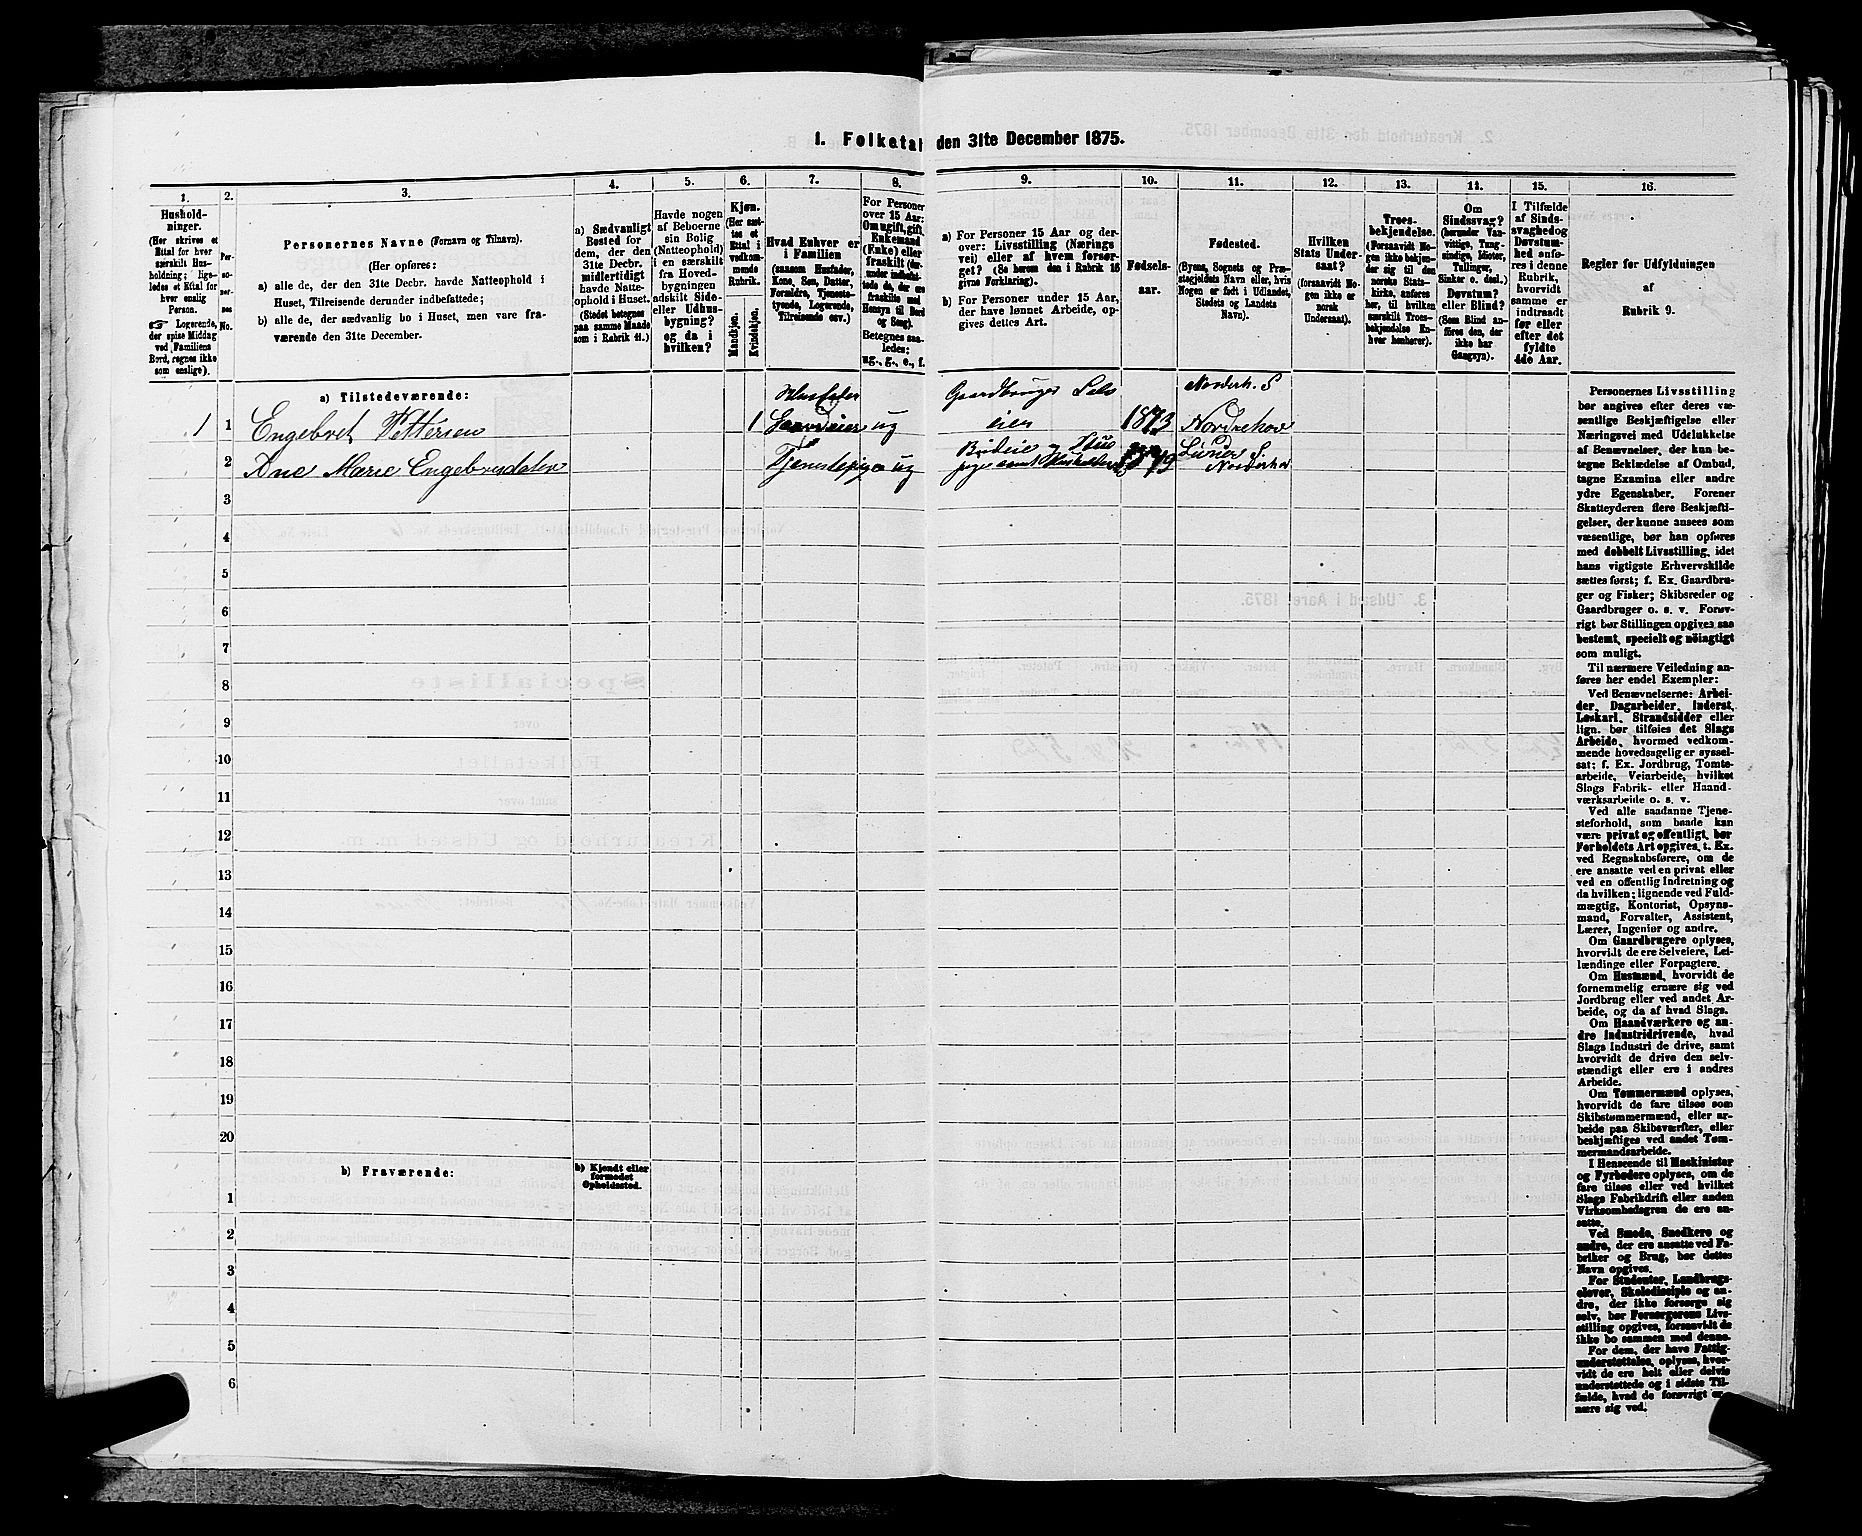 1. Folketal den 31te December 1875.
1.
2.
3.
4.
5.
6.
7.
8.
9.
10.
11.
12.
13.
14.
15.
16.
Hushold-
ninger.
(Her skrives et
Ettal for hver
særskilt Hus-
holdning; lige-
ledes et Ettal for
hver enslig
Person.
☞ Logerende,
der spise Middag
ved Familiens
Bord, regnes ikke
som enslige).
Per-
so-
ner-
nes
No.
Personernes Navne (Fornavn og Tilnavn).
(Her opføres:
a) alle de, der den 31te Decbr. havde Natteophold i
Huset, Tilreisende derunder indbefattede;
b) alle de, der sædvanlig bo i Huset, men vare fra-
værende den 31te December.
a) Sædvanligt
Bosted for
dem, der den
31te Decbr.
midlertidigt
havde Natte-
ophold i Huset.
(Stedet betegnes
paa samme Maade
som i Rubrik 11.)
Havde nogen
af Beboerne
sin Bolig
(Natteophold)
i en særskilt
fra Hoved-
bygningen
adskilt Side-
eller Udhus-
bygning?
og da i
hvilken?
Kjøn.
(Her sæt-
tes et
Ettal i
vedkom-
mende
Rubrik.
Mandkjøn.
Kvindekjøn.
Hvad Enhver er
i Familien
(saasom Husfader,
Kone, Søn, Datter,
Forældre, Tjeneste-
tyende, Logerende,
Tilreisende osv.)
For Personer
over 15 Aar:
Om ugift, gift,
Enkemand
(Enke) eller
fraskilt (der-
under indbefat-
tede de, der ere
fraskilte med
Hensyn til Bord
og Seng).
Betegnes saa-
ledes:
ug., g., e., f.
a) For Personer 15 Aar og der-
over: Livsstilling (Nærings
vei) eller af hvem forsør-
get? (Se herom den i Rubrik 16
givne Forklaring).
b) For Personer under 15 Aar,
der have lønnet Arbeide, op-
gives dettes Art.
Fødsels-
aar.
Fødested.
(Byens, Sognets og Præ-
stegjeldets Navn eller, hvis
Nogen er født i Udlandet,
Stedets og Landets
Navn).
Hvilken
Stats Under-
saat?
(forsaavidt No-
gen ikke er
norsk
Undersaat).
Troes-
bekjendelse.
(Forsaavidt No-
gen ikke bekjen-
der sig til den
norske Stats-
kirke, anføres
her, til hvilken
særskilt Troes-
bekjendelse En-
hver henhører).
Om
Sindssvag?
(herunder Van-
vittige, Tung-
sindige, Idioter,
Tullinger,
Sinker o. desl.)
Døvstum?
eller Blind?
(Som Blind an-
føres den, der
ikke har
Gangsyn).
I Tilfælde
af Sinds-
svaghed og
Døvstum-
hed anfø-
res i denne
Rubrik,
hvorvidt
samme er
indtraadt
før eller
efter det
fyldte
4de Aar.
Regler for Udfyldningen
af
Rubrik 9.
a) Tilstedeværende:
1 1 Engebret Pettersen 1 Husfader Gaardeier ug Gaardbruger Selv eier 1873 Norderh. S Nordrehov
2 Ane Marie Engebretsdatter Tjenstepige ug
3
4
5
6
7
8
9
10
11
12
13
14
15
16
17
18
19
20
b) Fraværende:
b) Kjendt eller
formodet
Opholdssted.
1
2
3
4
5
6
Personernes Livsstilling
bør angives efter deres væ-
sentlige Beskjæftigelse eller
Næringsvei med Udelukkelse
af Benævnelser, der kun be-
tegne Beklædelse af Ombud,
tagne Examina eller andre
ydre Egenskaber. Forener
Skatteyderen flere Beskjæfti-
gelser, der kunne ansees som
væsentlige, bør han opføres
med dobbelt Livsstilling, idet
hans vigtigste Erhvervskilde
sættes først; f. Ex. Gaardbru-
ger og Fisker; Skibsreder og
Gaardbruger o. s. v. Forøv-
rigt bør Stillingen opgives saa
bestemt, specielt og nøiagtigt
som muligt.
Til nærmere Veiledning an-
føres her endel Exempler:
Ved Benævnelserne: Arbei-
der, Dagarbeider, Inderst,
Løskarl, Strandsidder eller
lign. bør tilføies det Slags
Arbeide, hvormed vedkom-
mende hovedsagelig er syssel-
sat; f. Ex. Jordbrug, Tomte-
arbeide, Veiarbeide, hvilket
Slags Fabrik- eller Haand-
værksarbeide o. s. v.
Ved alle saadanne Tjene-
steforhold, som baade kan
være privat og offentligt, bør
Forholdets Art opgives, t. Ex.
ved Regnskabsførere, om de
ere ansatte ved en privat eller
ved en offentlig Indretning og
da hvilken; lignende ved Fuld-
mægtig, Kontorist, Opsyns-
mand, Forvalter, Assistent,
Lærer, Ingeniør og andre.
Om Gaardbrugere oplyses,
hvorvidt de ere Selveiere, Lei-
lændinge eller Forpagtere.
Om Husmænd, hvorvidt de
fornemmelig ernære sig ved
Jordbrug eller ved andet Ar-
beide, og da af hvad Slags.
Om Haandværkere og an-
dre Industridrivende, hvad
Slags Industri de drive, samt
hvorvidt de drive den selv-
stændigt eller ere i andres
Arbeide.
Om Tømmermænd oplyses,
hvorvidt de fare tilsøs som
Skibstømmermænd, eller ar-
beide paa Skibsværfter, eller
beskjæftiges ved andet Tøm-
mermandsarbeide.
I Henseende til Maskinister
og Fyrbødere oplyses, om de
fare tilsøs eller ved hvilket
Slags Fabrikdrift eller anden
Virksomhedsgren de ere an-
satte.
Ved Smede, Snedkere og
andre, der ere ansatte ved Fa-
briker og Brug, bør dettes
Navn opgives.
For Studenter, Landbrugs-
elever, Skoledisciple og an-
dre, der ikke forsørge sig
selv, bør Forsørgerens Livs-
stilling opgives, forsaavidt de
ikke bo sammen med denne.
For dem, der have Fattig-
understøttelse, oplyses, hvor-
vidt de ere helt eller delvis
understøttede og i sidste Til-
fælde, hvad de forøvrigt er-
nære sig ved.